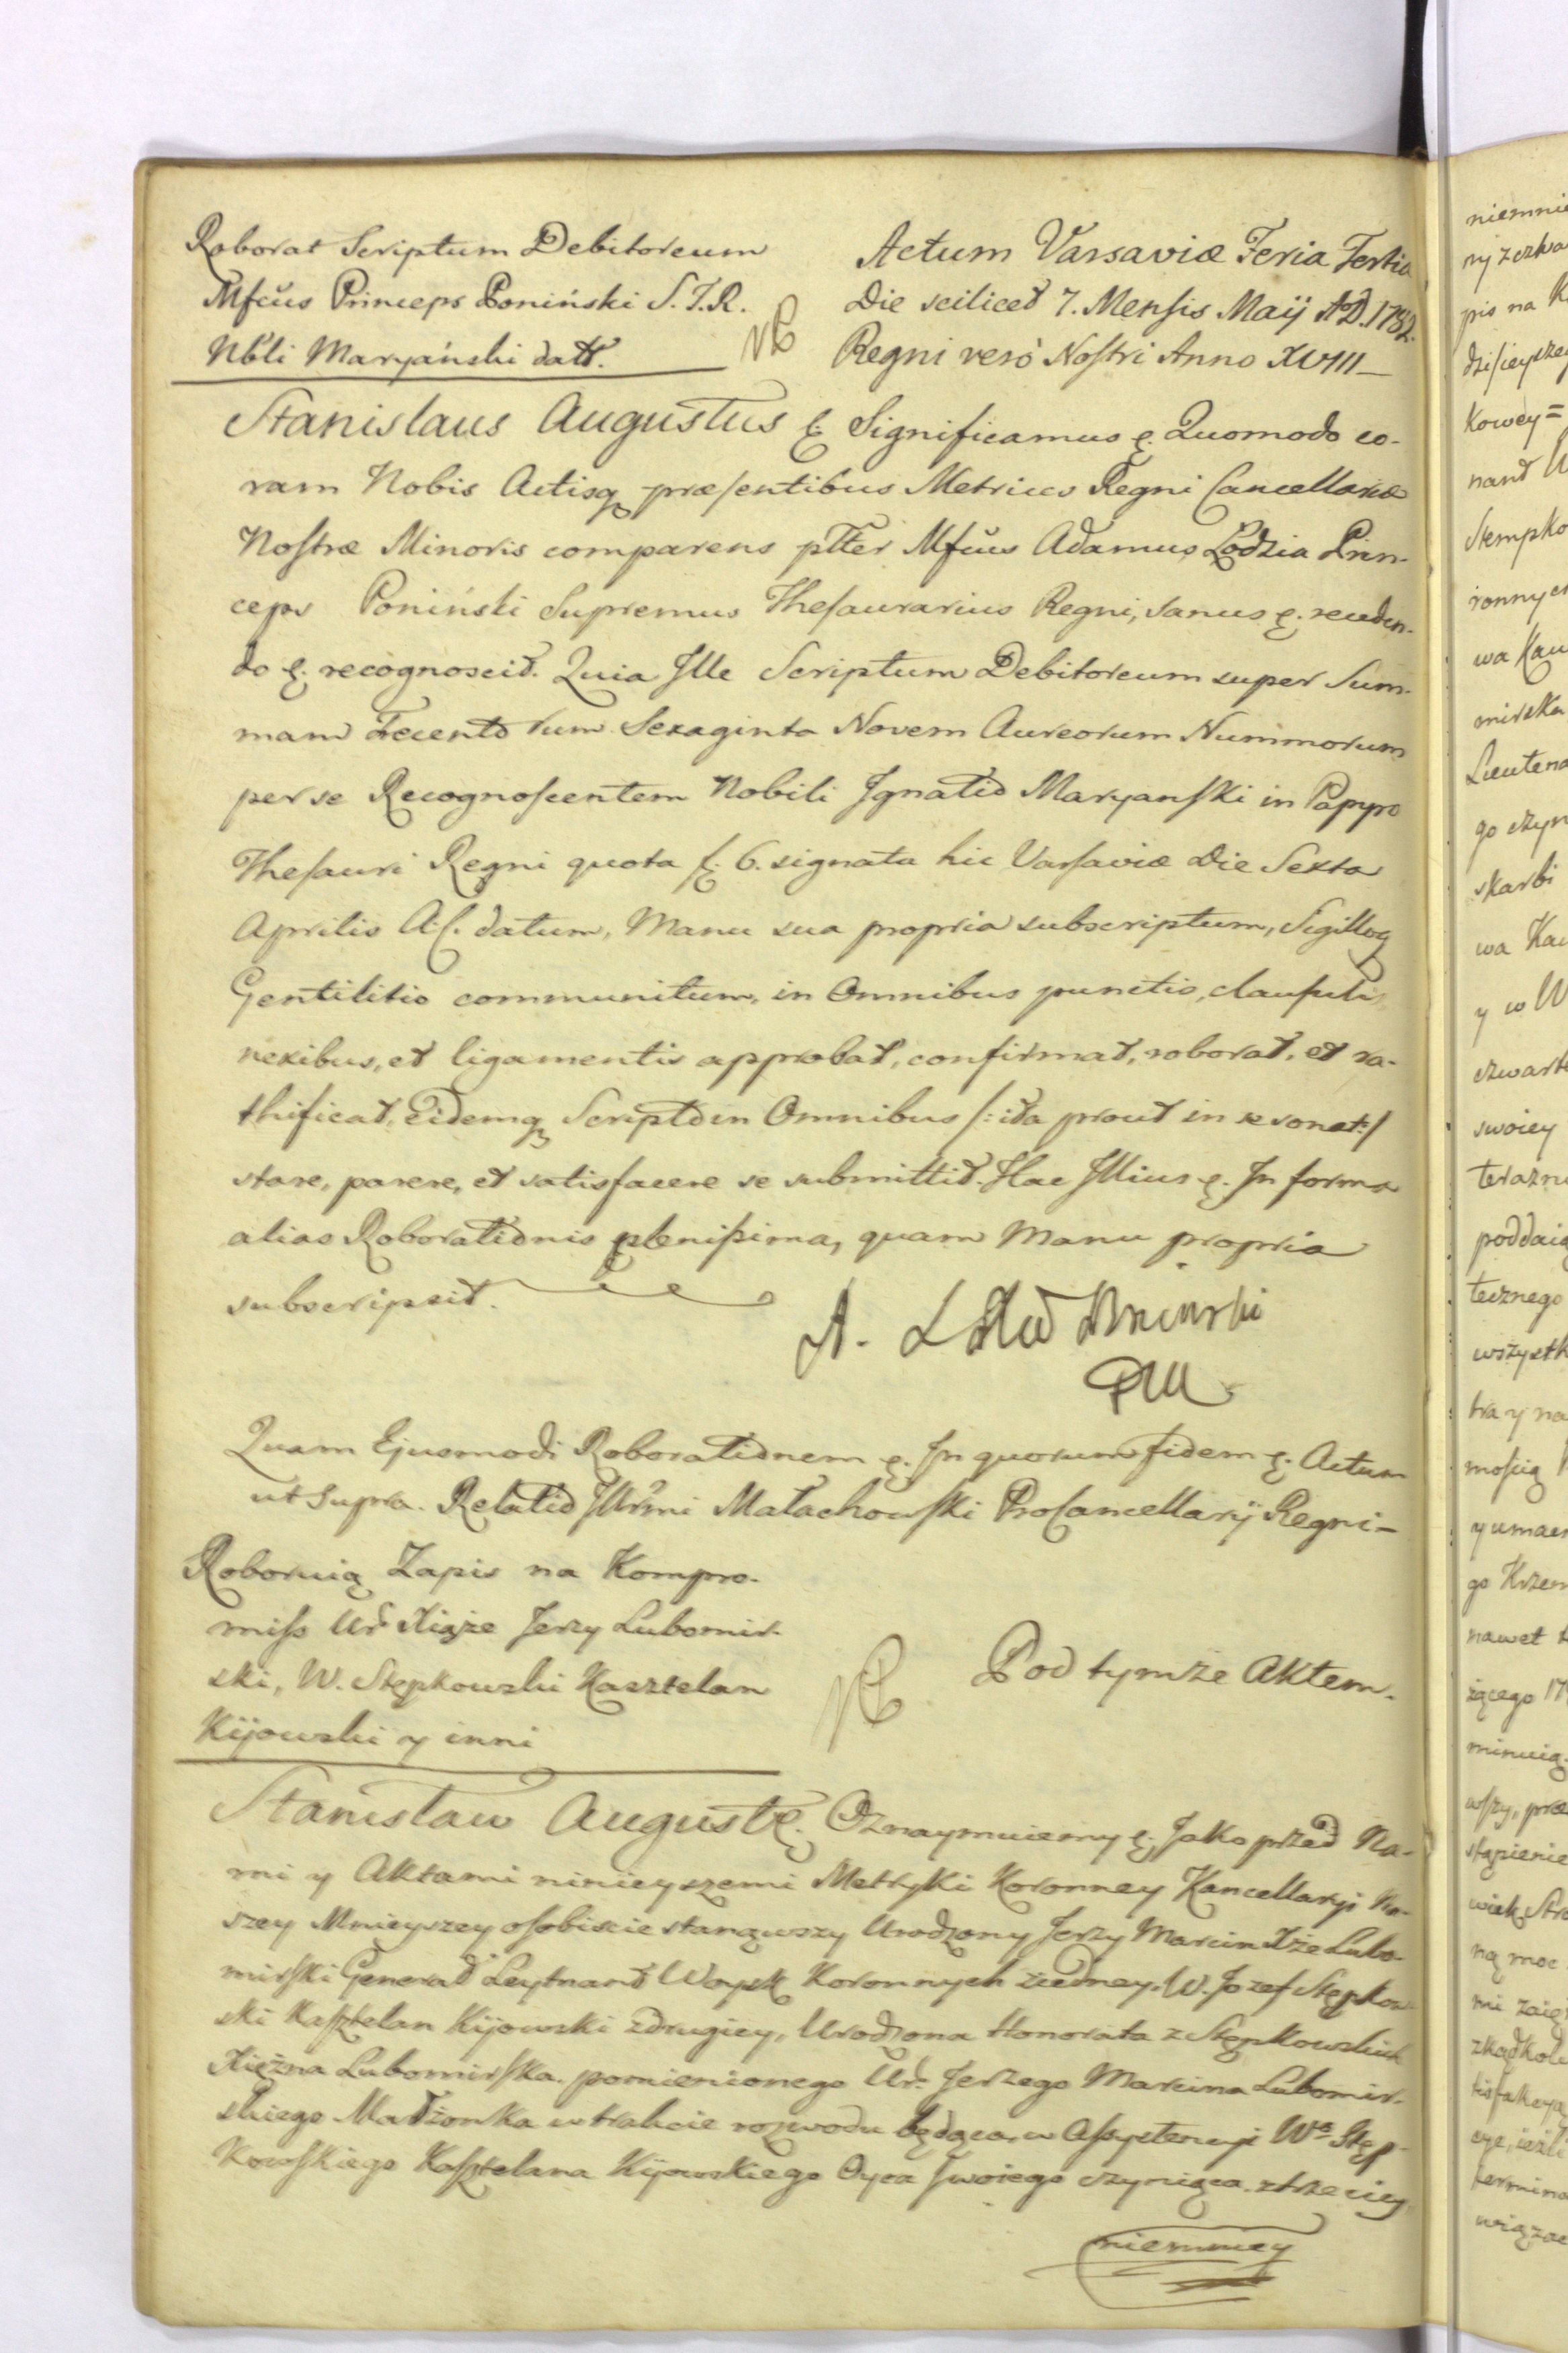 Roborat Scriptum Debitoreum
Mfcus Princeps Poniński S. T. R.
Nbli Maryański datt.
Actum Varsaviæ Feria Tertia
Die scilicet 7. Mensis Maÿ AD. 1782.
Regni verò Nostri Anno XVIII
Stanislaus Augustus &. Significamus &. Quomodo co-
ram Nobis Actisq præsentibus Metrices Regni Cancellariæ
Nostræ Minoris comparens plter Mfcus Adamus Łodzia Prin-
ceps Poniński Supremus Thesaurarius Regni, sanus &. receden-
do &. recognoscit. Quia Ille Scriptum Debitoreum super Sum-
mam Trecentorum Sexaginta Novem Aureorum Nummorum
per se Recognoscentem Nobili Ignatio Maryanski in Papyro
Thesauri Regni quota f. 6. signata hic Varsaviæ Die Sexta
Aprilis A. C. datum, Manu sua propria subscriptum, Sigilloq
Gentilitio communitum, in Omnibus punctis, clausulis
nexibus, et ligamentis approbat, confirmat, roborat, et ra-
thificat, Eidemq Scripto in Omnibus /: ita prout in se sonat :/
stare, parere, et satisfacere se submittit. Hac Illius &. In forma
alias Roborationis plenissima, quam Manu propria
subscripsit.
A. Poninski
Quam Ejusmodi Roborationem &. In quorum fidem &. Actum
ut supra. Relatio Illrmi Małachowski ProCancellarÿ Regni-
Roboruią Zapis na Kompro-
miss Ur. Xiąże Jerzy Lubomir-
ski, W. Stępkowski Kasztelan
Kijowski y inni
Pod tymże Aktem.
Stanisław August &. Oznaymuiemy &. Jako przed Na-
mi y Aktami ninieyszemi Metryki Koronney Kancellaryi Na-
szey Mnieyszey osobiscie stanąwszy Urodzony Jerzy Marcin Xże Lubo-
mirski Generał Leytnant Woysk Koronnych ziedney. W. Jozef Stępkow-
ski Kasztelan Kijowski zdrugiey, Urodzona Honorata z Stępkowskich
Xiężna Lubomirska pomienionego Ur. Jerzego Marcina Lubomir-
skiego Małżonka w trakcie rozwodu będąca, w Assystencyi Wo Stęp-
kowskiego Kasztelana Kijowskiego Oyca Swoiego czyniąca. ztrzeciey
niemniey